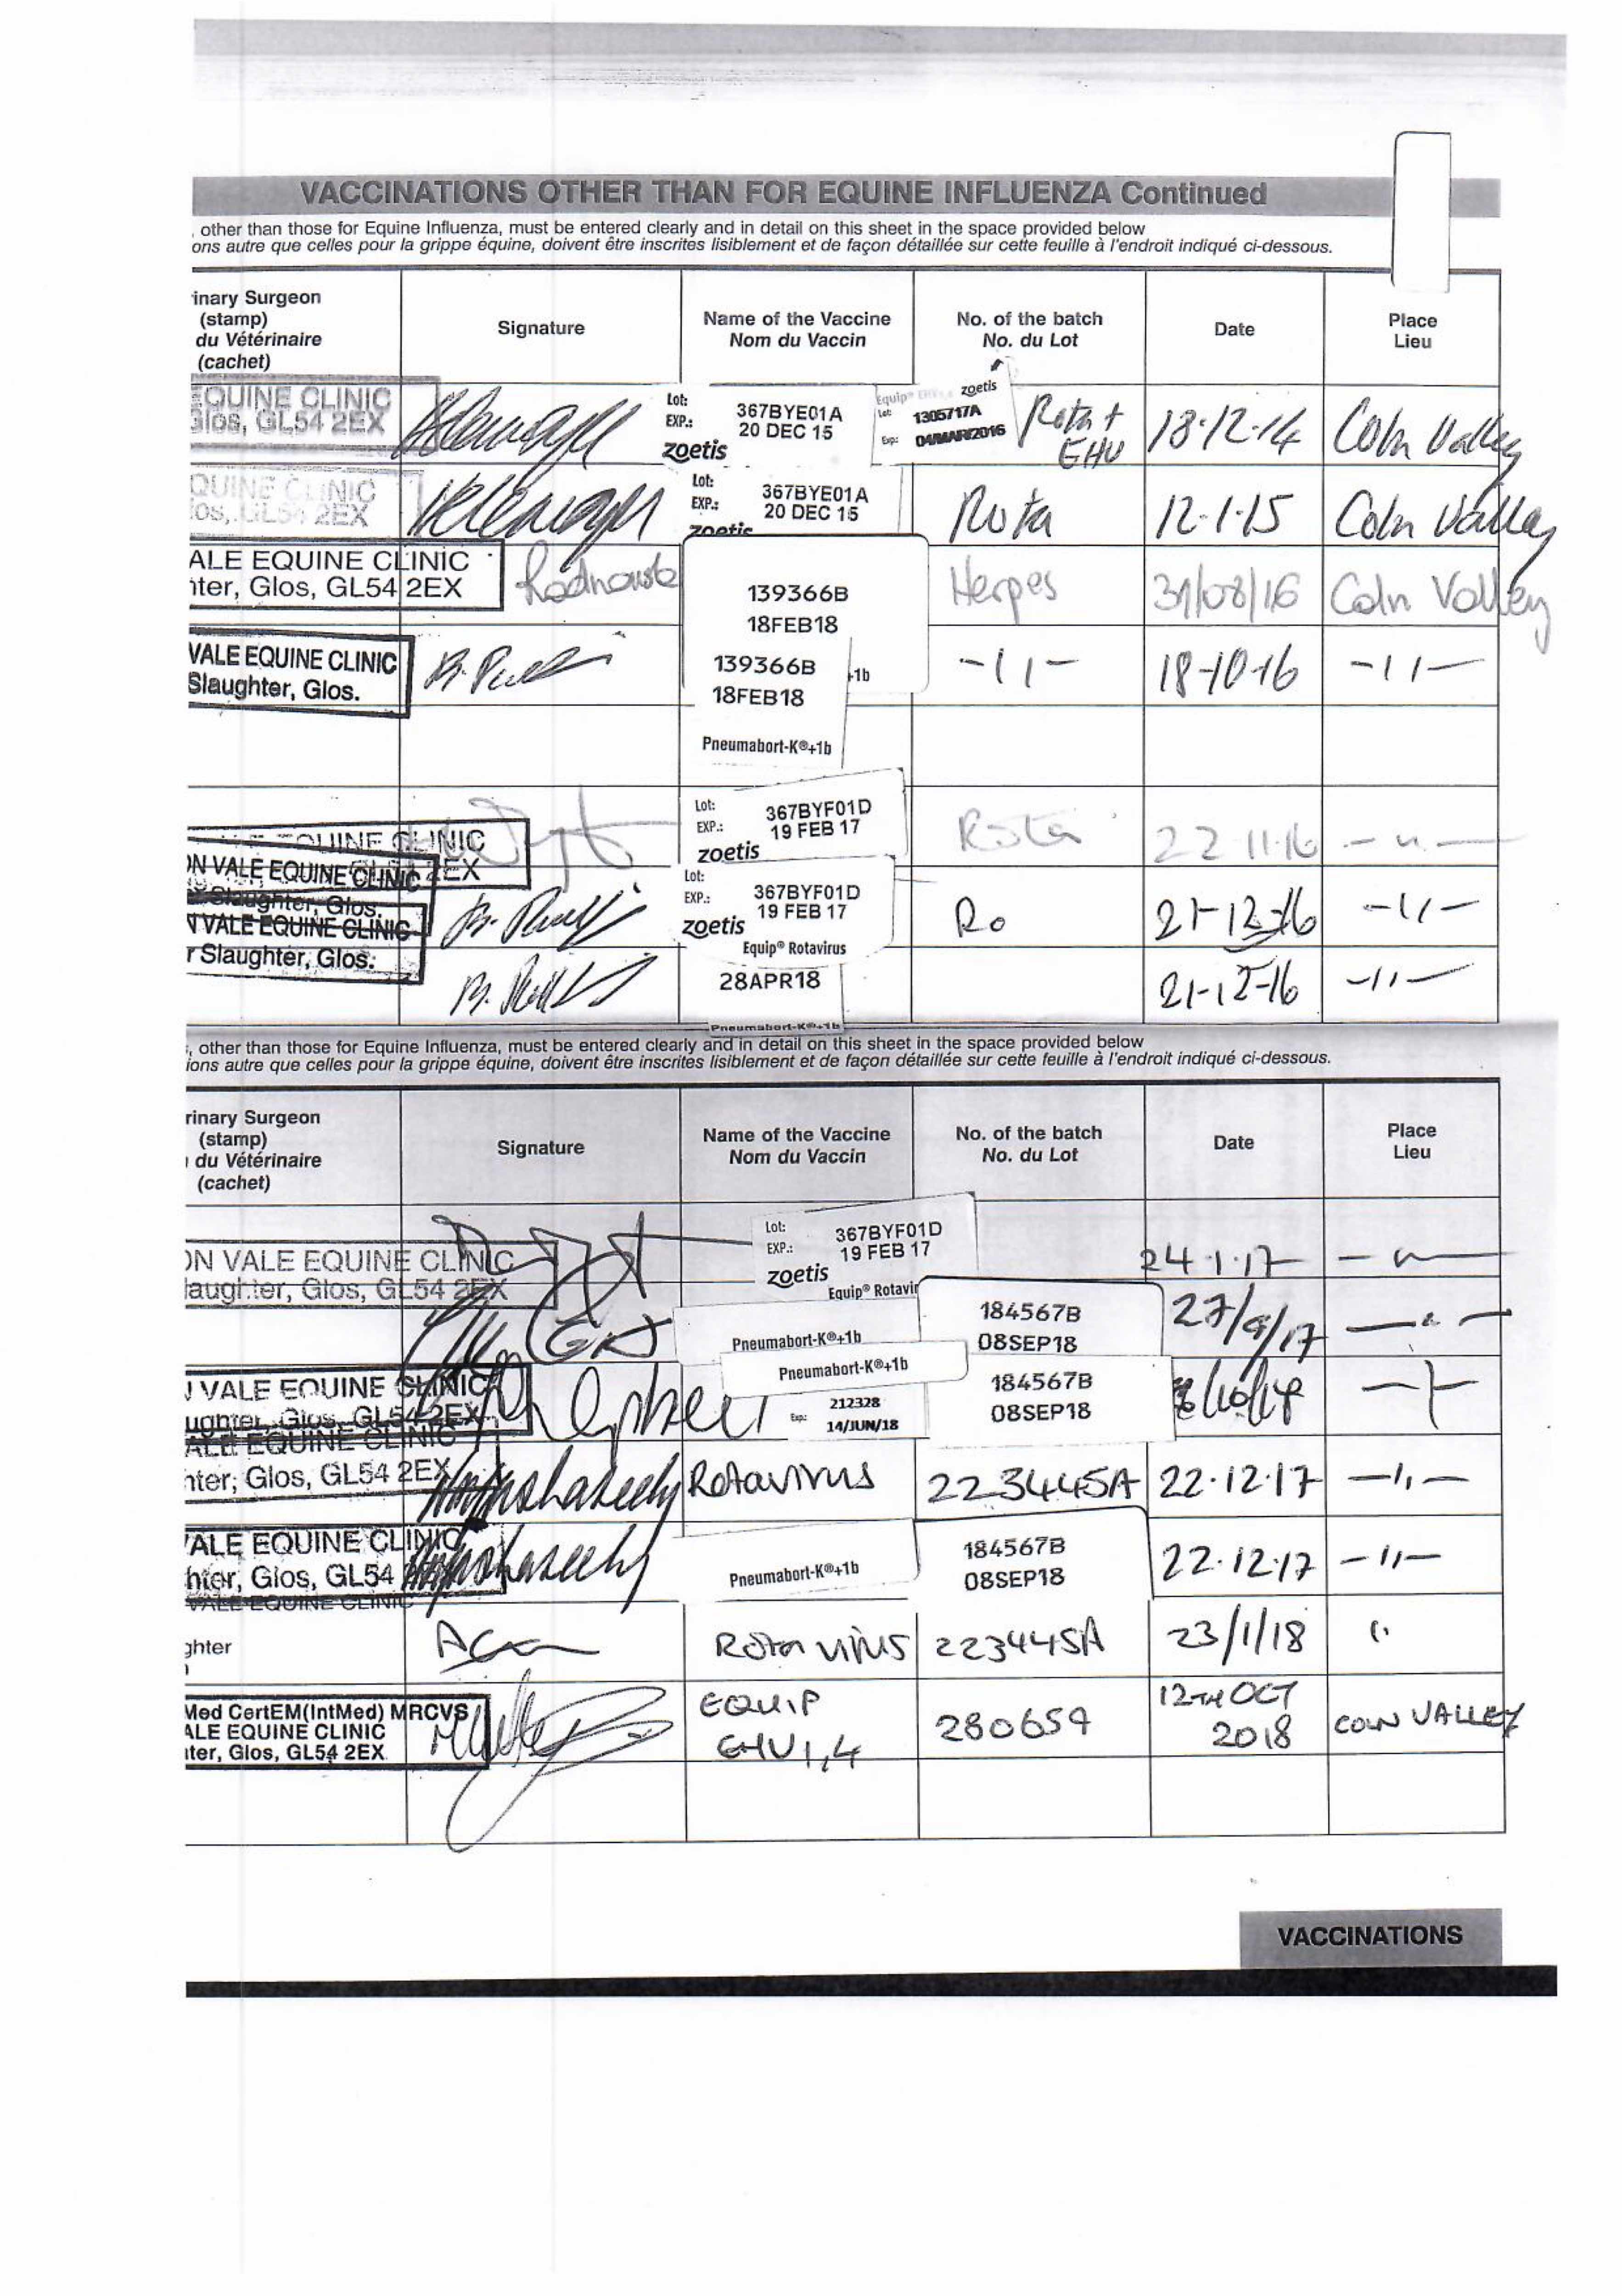 VACCINATIONS OTHER THAN FOR EQUINE INFLUENZA Continued
, other than those for Equine Influenza, must be entered clearly and in detail on this sheet in the space provided below
ons autre que celles pour la grippe équine, doivent être inscrites lisiblement et de façon détaillée sur cette feuille à l'endroit indiqué ci-dessous.
inary Surgeon
(stamp)
du Vétérinaire
(cachet)
Signature
Name of the Vaccine
Nom du Vaccin
No. of the batch
No. du Lot
Date
Place
Lieu
EQUINE CLINIC
Glos, GL54 2EX
Lot: 367BYE01A
EXP.: 20 DEC 15
zoetis
Equip® zoetis
Lot: 1305717A
Exp: 04/MAR/2016
Rota +
EHV
18.12.14
Coln Valley
QUINE CLINIC
los, GL54 2EX
Lot: 367BYE01A
EXP.: 20 DEC 15
zoetis
Rota
12.1.15
Coln Valley
ALE EQUINE CLINIC
hter, Glos, GL54 2EX
139366B
18FEB18
Herpes
31/08/16
Coln Valley
VALE EQUINE CLINIC
Slaughter, Glos.
139366B +1b
18FEB18
Pneumabort-K®+1b
-11-
18-10-16
-11-
EQUINE CLINIC
2EX
Lot: 367BYF01D
EXP.: 19 FEB 17
zoetis
Rota
22.11.16
-"-
ON VALE EQUINE CLINIC
Slaughter, Glos.
Lot: 367BYF01D
EXP.: 19 FEB 17
zoetis
Equip® Rotavirus
Ro
21-12-16
-11-
N VALE EQUINE CLINIC
r Slaughter, Glos.
28APR18
Pneumabort-K®+1b
21-12-16
-11-
, other than those for Equine Influenza, must be entered clearly and in detail on this sheet in the space provided below
ions autre que celles pour la grippe équine, doivent être inscrites lisiblement et de façon détaillée sur cette feuille à l'endroit indiqué ci-dessous.
rinary Surgeon
(stamp)
du Vétérinaire
(cachet)
Signature
Name of the Vaccine
Nom du Vaccin
No. of the batch
No. du Lot
Date
Place
Lieu
ON VALE EQUINE CLINIC
laughter, Glos, GL54 2EX
Lot: 367BYF01D
EXP.: 19 FEB 17
zoetis
Equip® Rotavir
24.1.17
-"-
Pneumabort-K®+1b
184567B
08SEP18
27/9/17
-"-
VALE EQUINE CLINIC
ughter, Glos, GL54 2EX
Pneumabort-K®+1b
212328
Exp: 14/JUN/18
184567B
08SEP18
ALE EQUINE CLINIC
hter, Glos, GL54 2EX
Rotavirus
223445A
22.12.17
-11-
VALE EQUINE CLINIC
hter, Glos, GL54
Pneumabort-K®+1b
184567B
08SEP18
22.12.17
-11-
VALE EQUINE CLINIC
ghter
Rotavirus
223445A
23/1/18
"
Med CertEM(IntMed) MRCVS
ALE EQUINE CLINIC
hter, Glos, GL54 2EX
EQUIP
EHV 1,4
12TH OCT
2018
COLN VALLEY
VACCINATIONS